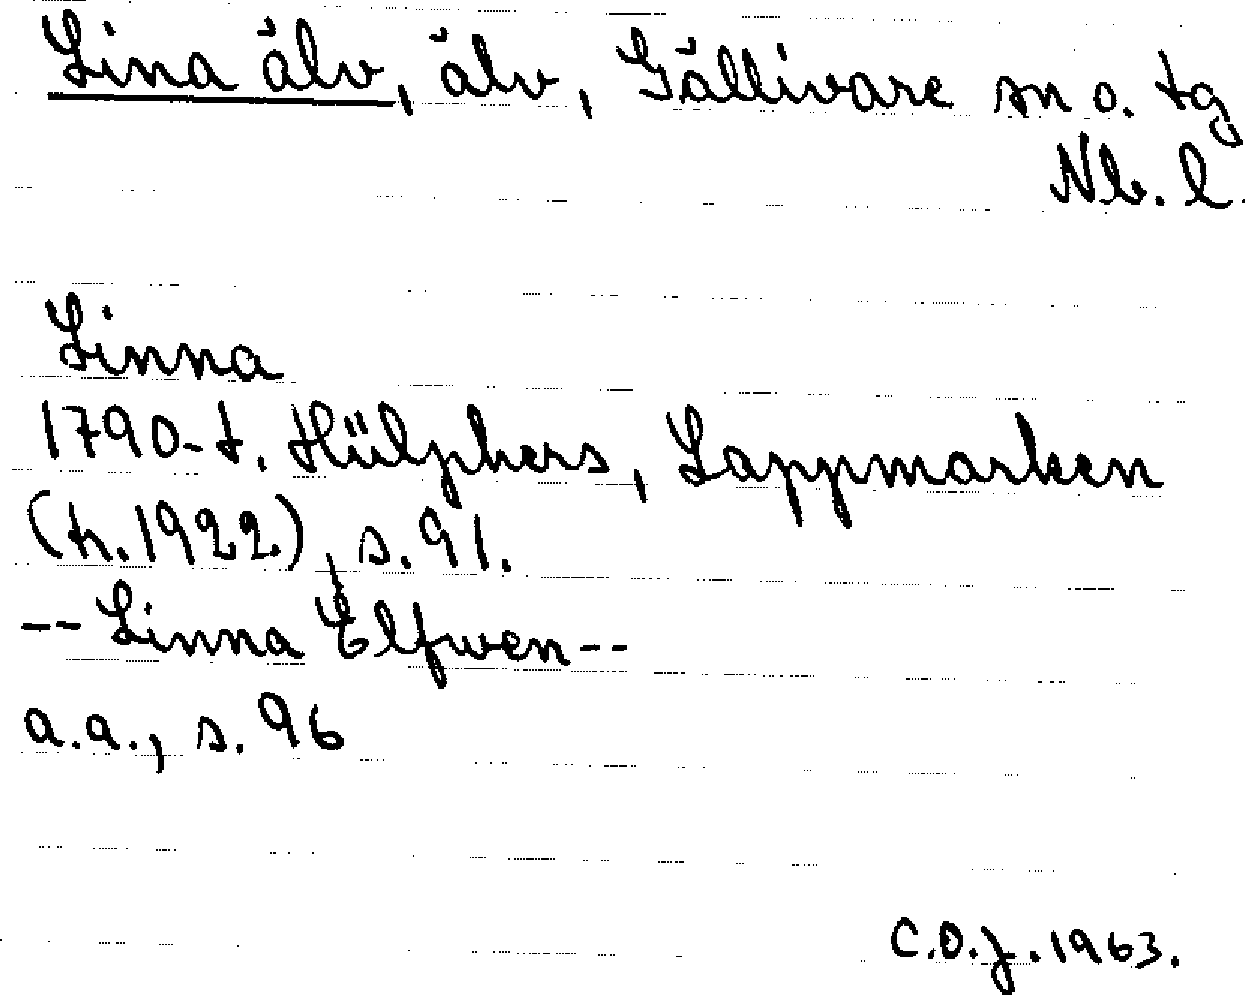 Lina älv, älv, Gällivare sn o. tg
Nb. l.
Linna
1790-t. Hülphers, Lappmarken
(tr. 1922), s. 91.
-- Linna Elfwen --
a.a., s. 96
C.O.J. 1963.